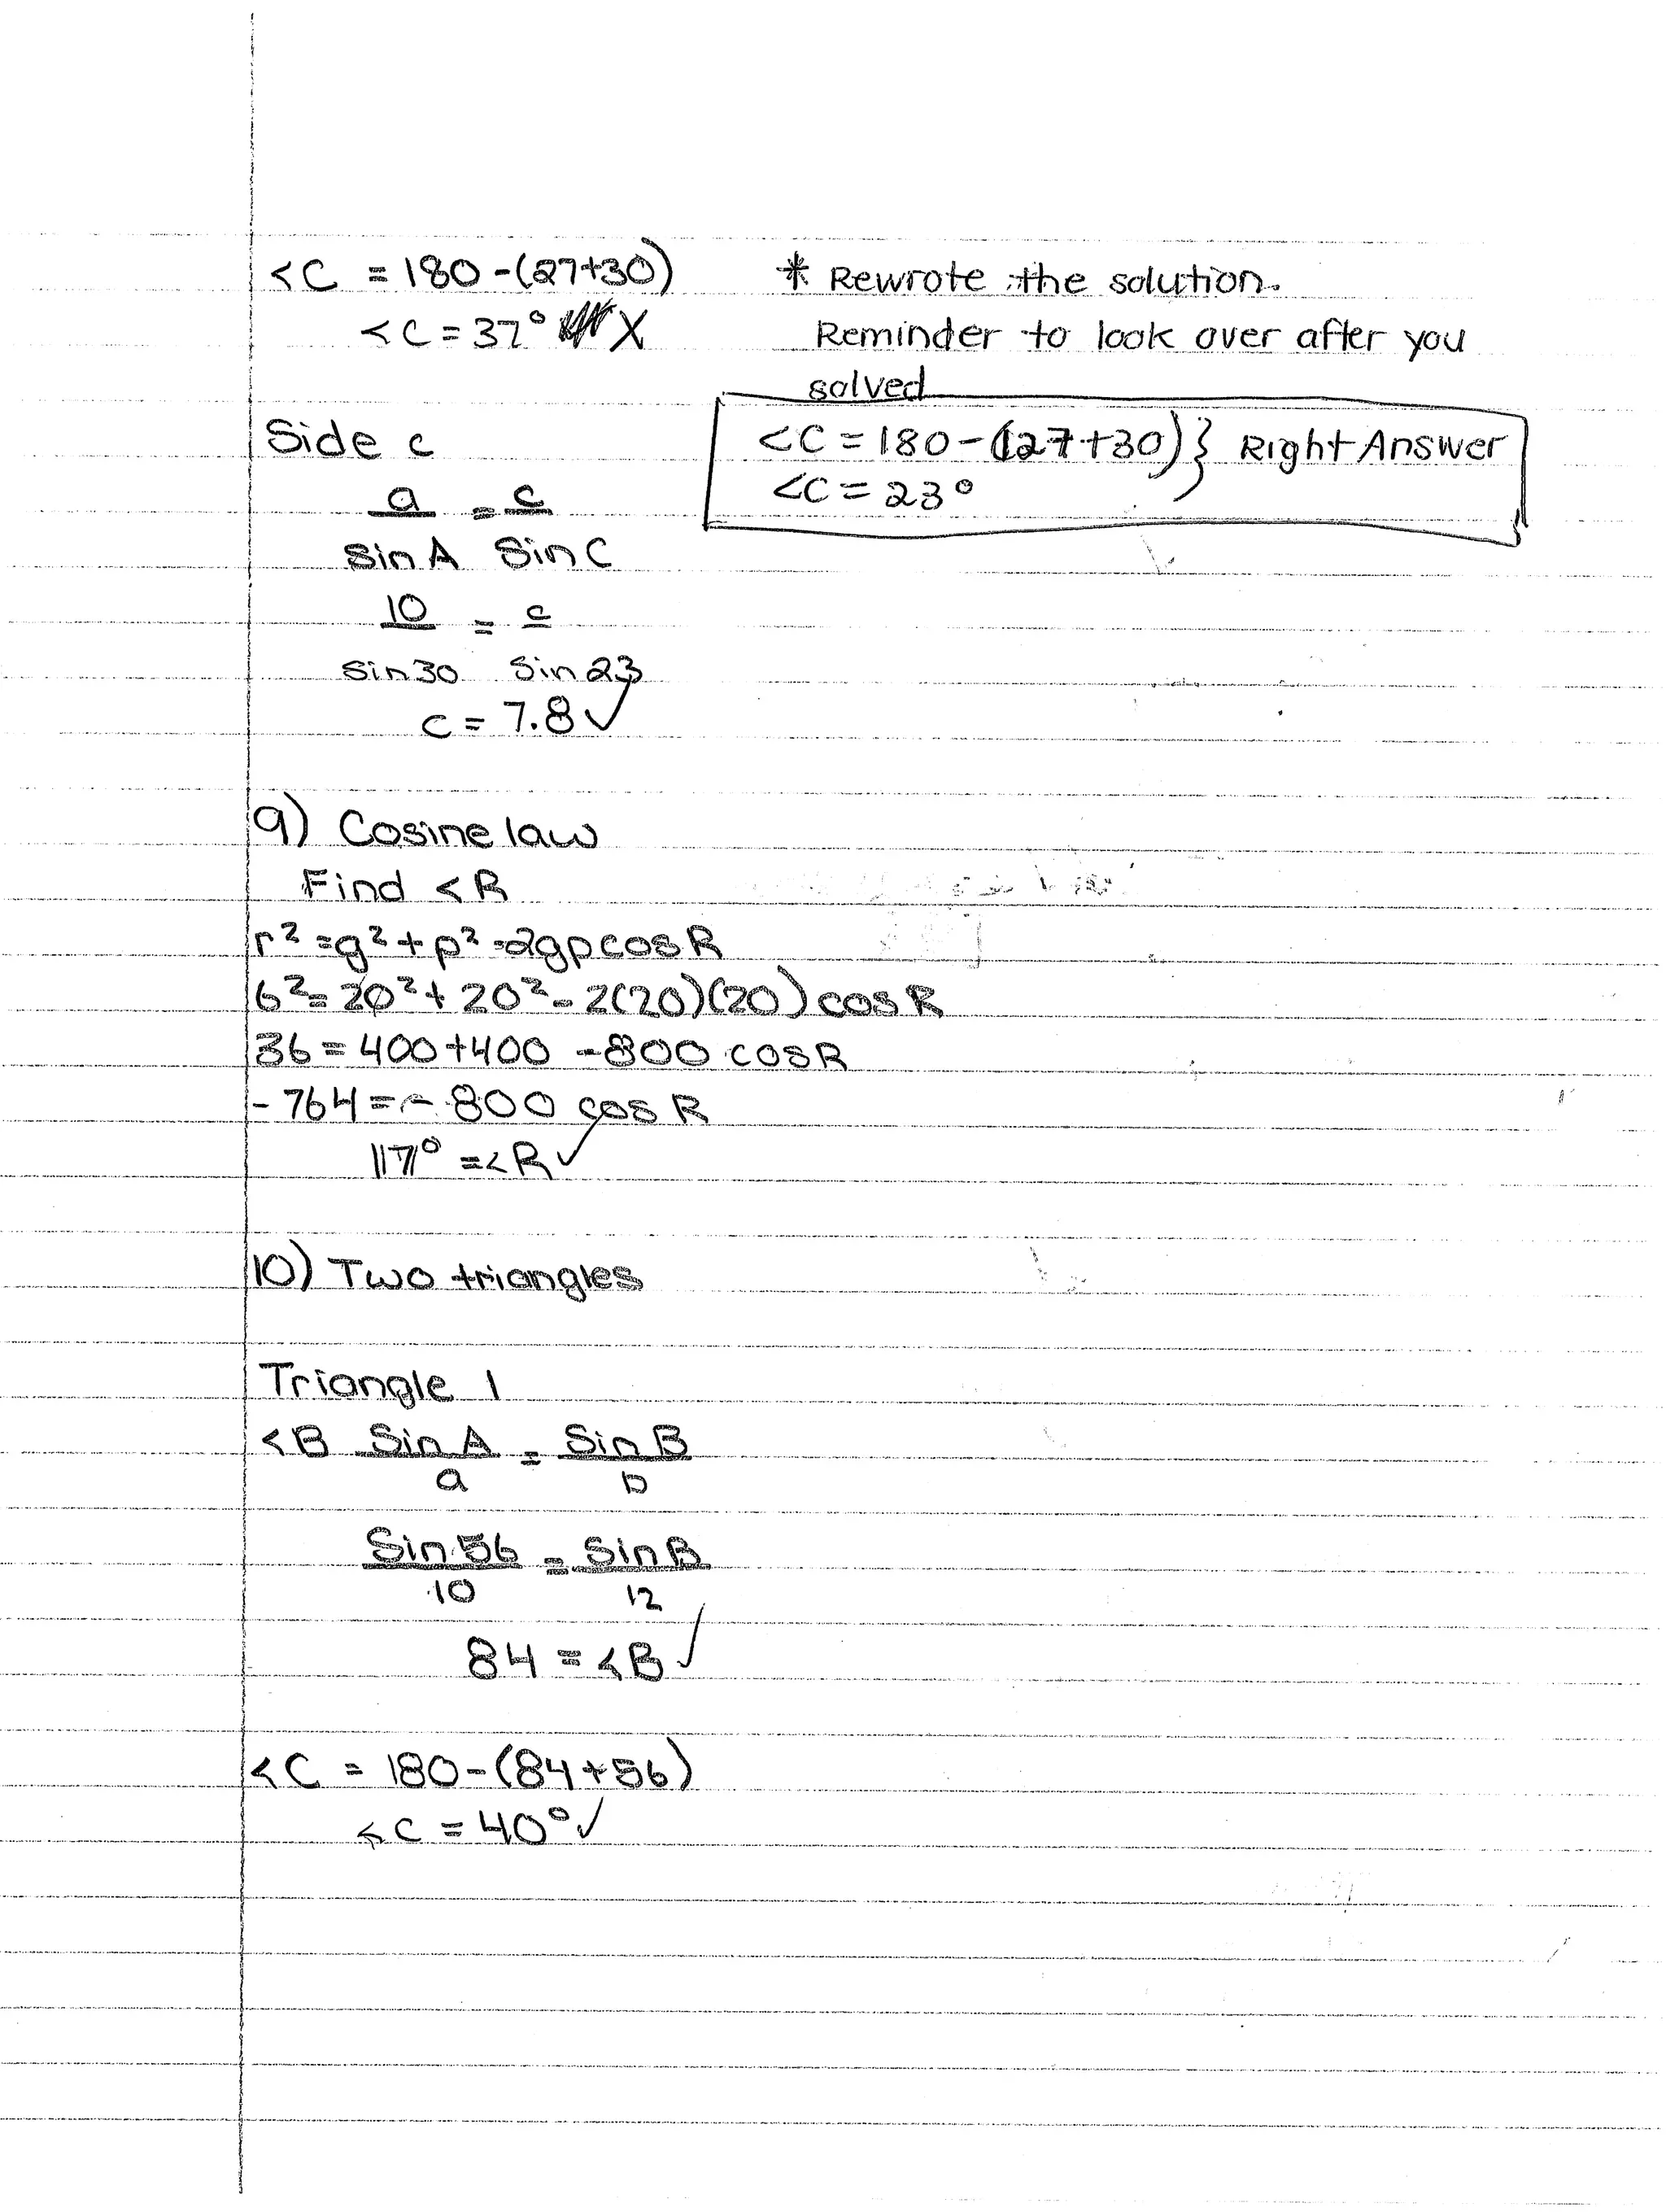 <C = 180-(27+30)
<C = 37° X
* Rewrote the solution.
Reminder to look over after you
solved
<C = 180-(127+30)} Right Answer
<C = 23°
Side c
a = c
sin A Sin C
10 = c
sin30 Sin 23
c = 7.8 ✓
9) Cosine law
Find <R
r² = g² + p² - 2gp cos R
6² = 20² + 20² - 2(20)(20) cos R
36 = 400 + 400 - 800 cos R
- 764 = - 800 cos R
117° = <R ✓
10) Two triangles
Triangle 1
<B Sin A = Sin B
a b
Sin 56 = Sin B
10 12
84 = <B ✓
<C = 180-(84+56)
<C = 40° ✓